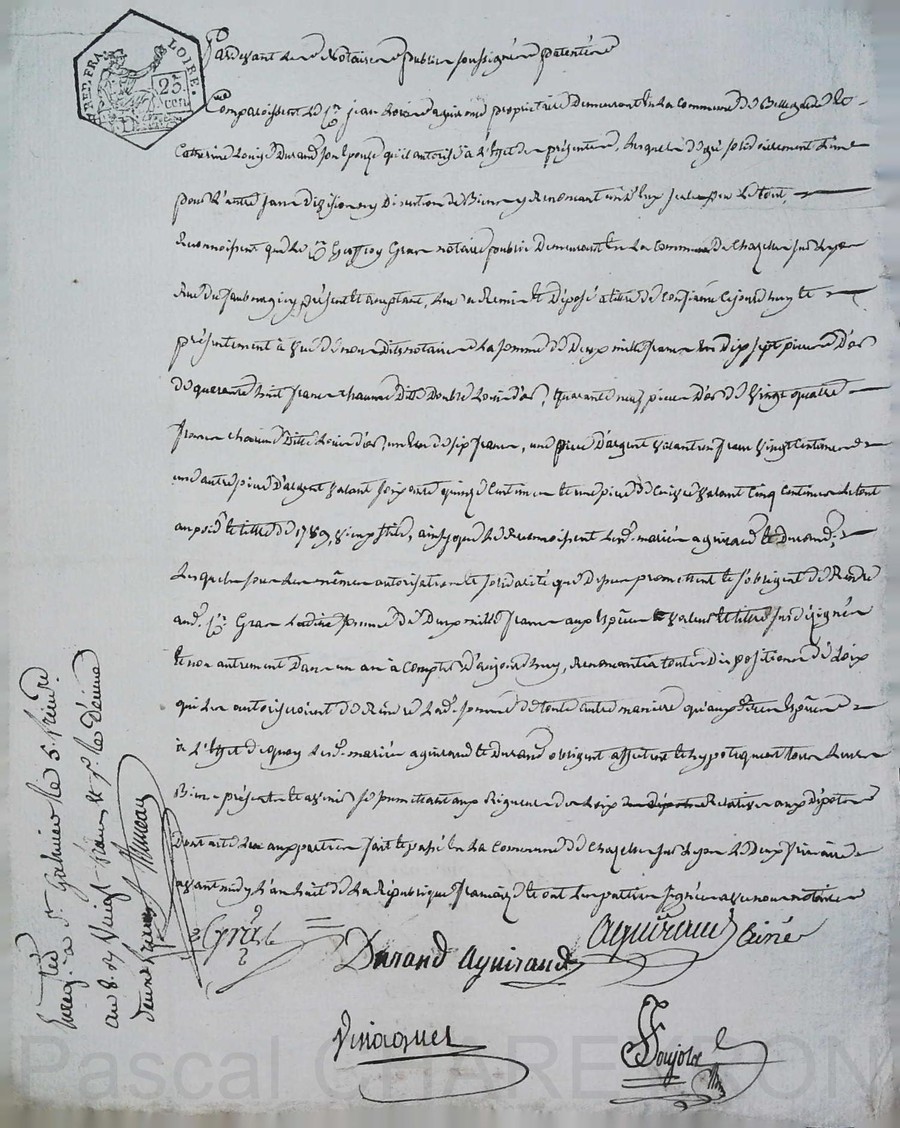 REP. FRA. LOIRE.
25 cen
Pardevant Les Notaires publics soussignés patentés
Comparoissent le Sr jean Louis aguiraud propriétaire Demeurant En La Commune de
Catherine Louise Durand son Epouse qu'il autorise à L'effet des présentes, Lesquels de gré solidairement L'un
pour L'autre sans Division ny Discution de Biens y Renonçant un d'Eux seul pour Le tout,
Reconnoissent que Le Sr Gras notaire public Demeurant En La Commune De Chazelles sur Lyon
Rue du présent et acceptant, Leur a Remis et déposé à titre de ce jourd'huy et
présentement à vüe de nous Dits notaires La somme de Deux mille francs En Dix sept pieces D'or
de quarante huit francs chacune Ditte Double Louis d'or, quarante neuf pieces D'or de Vingt quatre
francs chacune Ditte Louis d'or, un Ecu de six francs, une piece D'argent valant trois francs Vingt Centimes
une autre piece D'argent valant soixante quinze Centimes et une piece de Cuivre valant Cinq Centimes, Le tout
au poids et titre de 1789, vieux stile, ainsy que Le Reconnoissent Lesd. mariés aguiraud et Durand,
Lesquels sous Les mêmes autorisation et solidarité que Dessus promettent et s'obligent de Rendre
aud. Sr Gras Ladite somme de Deux mille francs aux Espèces valeur et titre susdésignés
et non autrement Dans un an à Compter D'aujourd'huy, Renonçant à toutes Dispositions de Loix
qui Les autoriseroient de Rendre Lad. somme de toute autre maniere qu'auxdites Espèces
à L'effet de quoy Lesd. mariés aguiraud et Durand obligent affectent et hypotequent tous Leurs
Biens présents et avenir se soumettant aux Rigueurs des Loix Relatives aux Dépots
Dont acte Lu aux parties fait et passé En La Commune de Chazelles sur Lyon Le Deux frimaire
avant midy L'an huit de La République française et ont Les parties signé avec nous notaires
Gras
Durand aguiraud
aguiraud
Vinagues
Enregistré à St Galmier le 5 frimre
an 8. Vingt francs et pr le décime
deux francs
Pascal CHAREYRON